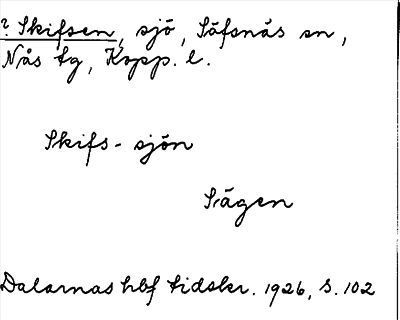 ? Skifsen, sjö, Säfsnäs sn,
Nås tg, Kopp. l.
Skifs- sjön
Sågen
Dalarnas hbf tidskr. 1926, s. 102